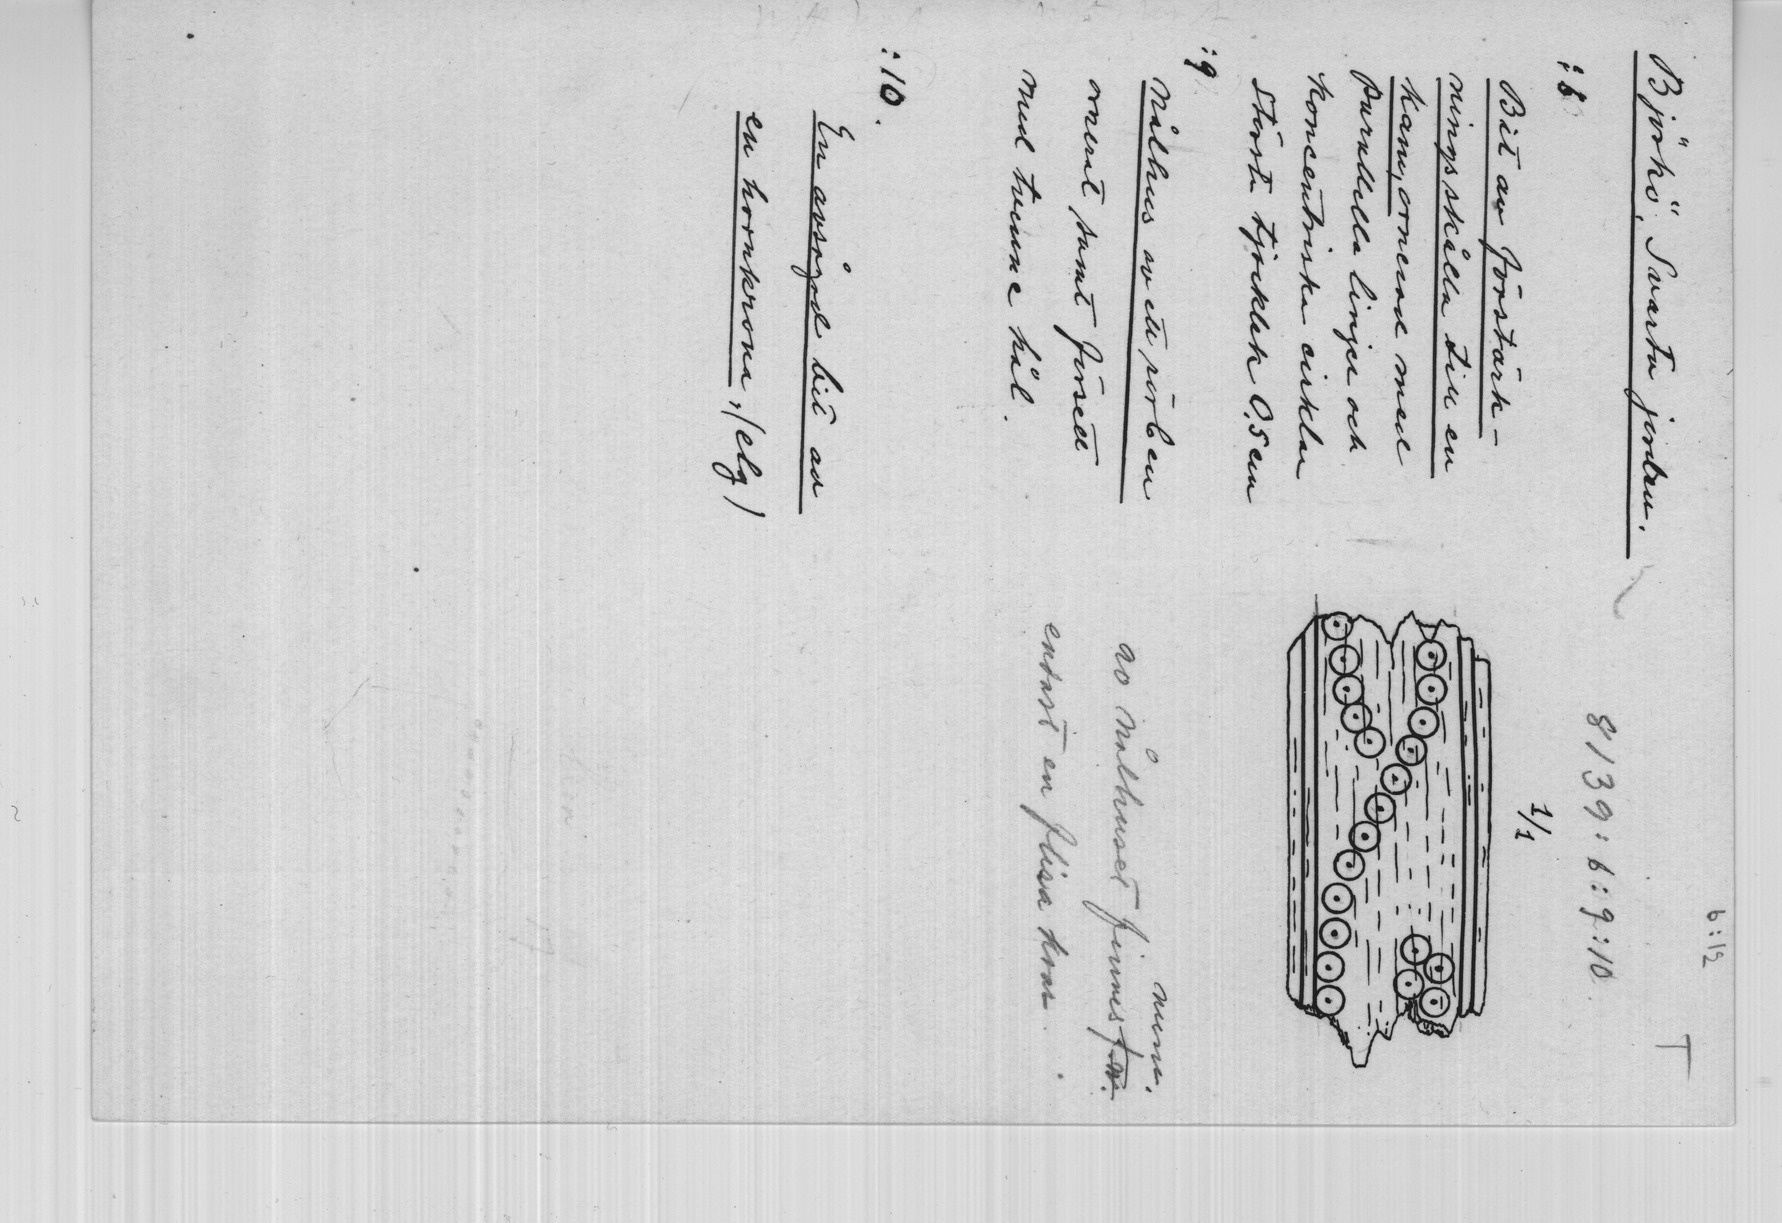 6:12
Björkö, Svarta jorden.
8139:6:9:10.
:6
Bit av förstärk-
ningsskålla till en
kam, ornerad med
parallella linjer och
koncentriska cirklar
största tjocklek 0,5 cm
1/1
:9
Nålhus av ett rörben
ornerat samt försett
med tvenne hål.
av nålhuset finnes
numi.
endast en flisa kvar.
:10.
En avsågad bit av
en hornkrona, (elg)